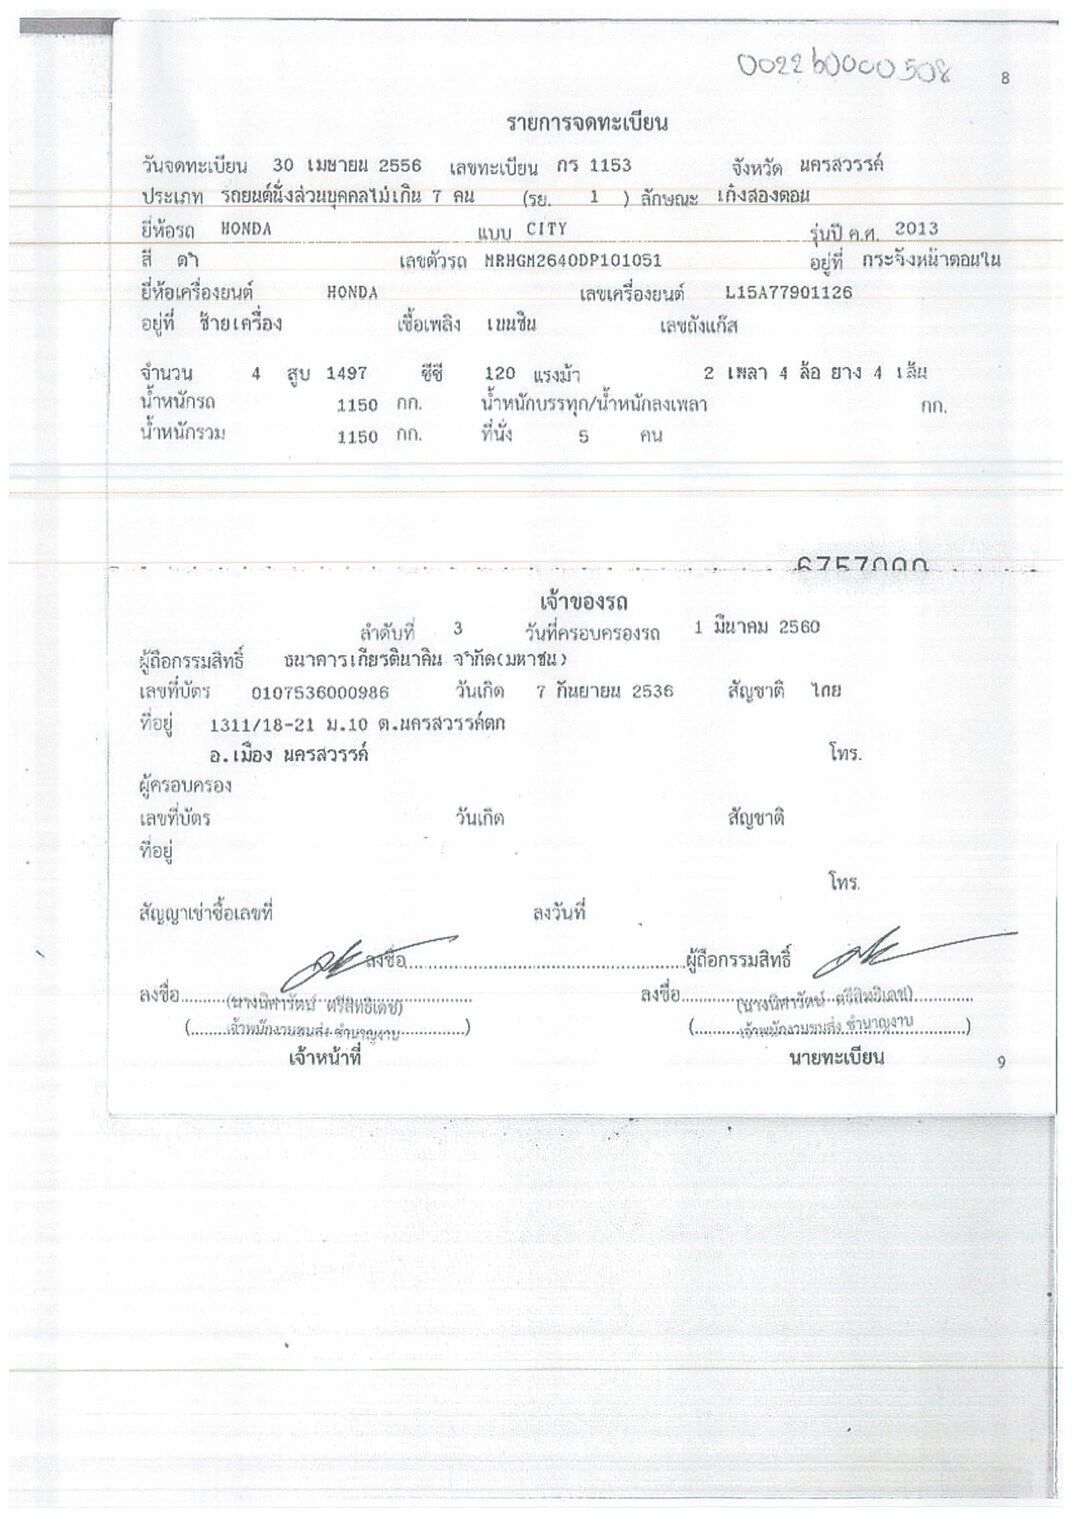 0022b0000508
8
รายการจดทะเบียน
วันจดทะเบียน 30 เมษายน 2556 เลขทะเบียน กร 1153 จังหวัด นครสวรรค์
ประเภท รถยนต์นั่งส่วนบุคคลไม่เกิน 7 คน (รย. 1 ) ลักษณะ เก๋งสองตอน
ยี่ห้อรถ HONDA แบบ CITY รุ่นปี ค.ศ. 2013
สี ดำ เลขตัวรถ MRHGM2640DP101051 อยู่ที่ กระจังหน้าตอนใน
ยี่ห้อเครื่องยนต์ HONDA เลขเครื่องยนต์ L15A77901126
อยู่ที่ ซ้ายเครื่อง เชื้อเพลิง เบนซิน เลขถังแก๊ส
จำนวน 4 สูบ 1497 ซีซี 120 แรงม้า 2 เพลา 4 ล้อ ยาง 4 เส้น
น้ำหนักรถ 1150 กก. น้ำหนักบรรทุก/น้ำหนักลงเพลา กก.
น้ำหนักรวม 1150 กก. ที่นั่ง 5 คน
เจ้าของรถ
ลำดับที่ 3 วันที่ครอบครองรถ 1 มีนาคม 2560
ผู้ถือกรรมสิทธิ์ ธนาคารเกียรตินาคิน จำกัด(มหาชน)
เลขที่บัตร 0107536000986 วันเกิด 7 กันยายน 2536 สัญชาติ ไทย
ที่อยู่ 1311/18-21 ม.10 ต.นครสวรรค์ตก
อ.เมือง นครสวรรค์ โทร.
ผู้ครอบครอง
เลขที่บัตร วันเกิด สัญชาติ
ที่อยู่
โทร.
สัญญาเช่าซื้อเลขที่ ลงวันที่
ลงชื่อ........................................ผู้ถือกรรมสิทธิ์
ลงชื่อ........................................ ลงชื่อ........................................
(นางนิศารัตน์ ศรีสิทธิเดช) (นางนิศารัตน์ ศรีสิทธิเดช)
(เจ้าพนักงานขนส่ง ชำนาญงาน) (เจ้าพนักงานขนส่ง ชำนาญงาน)
เจ้าหน้าที่ นายทะเบียน
9